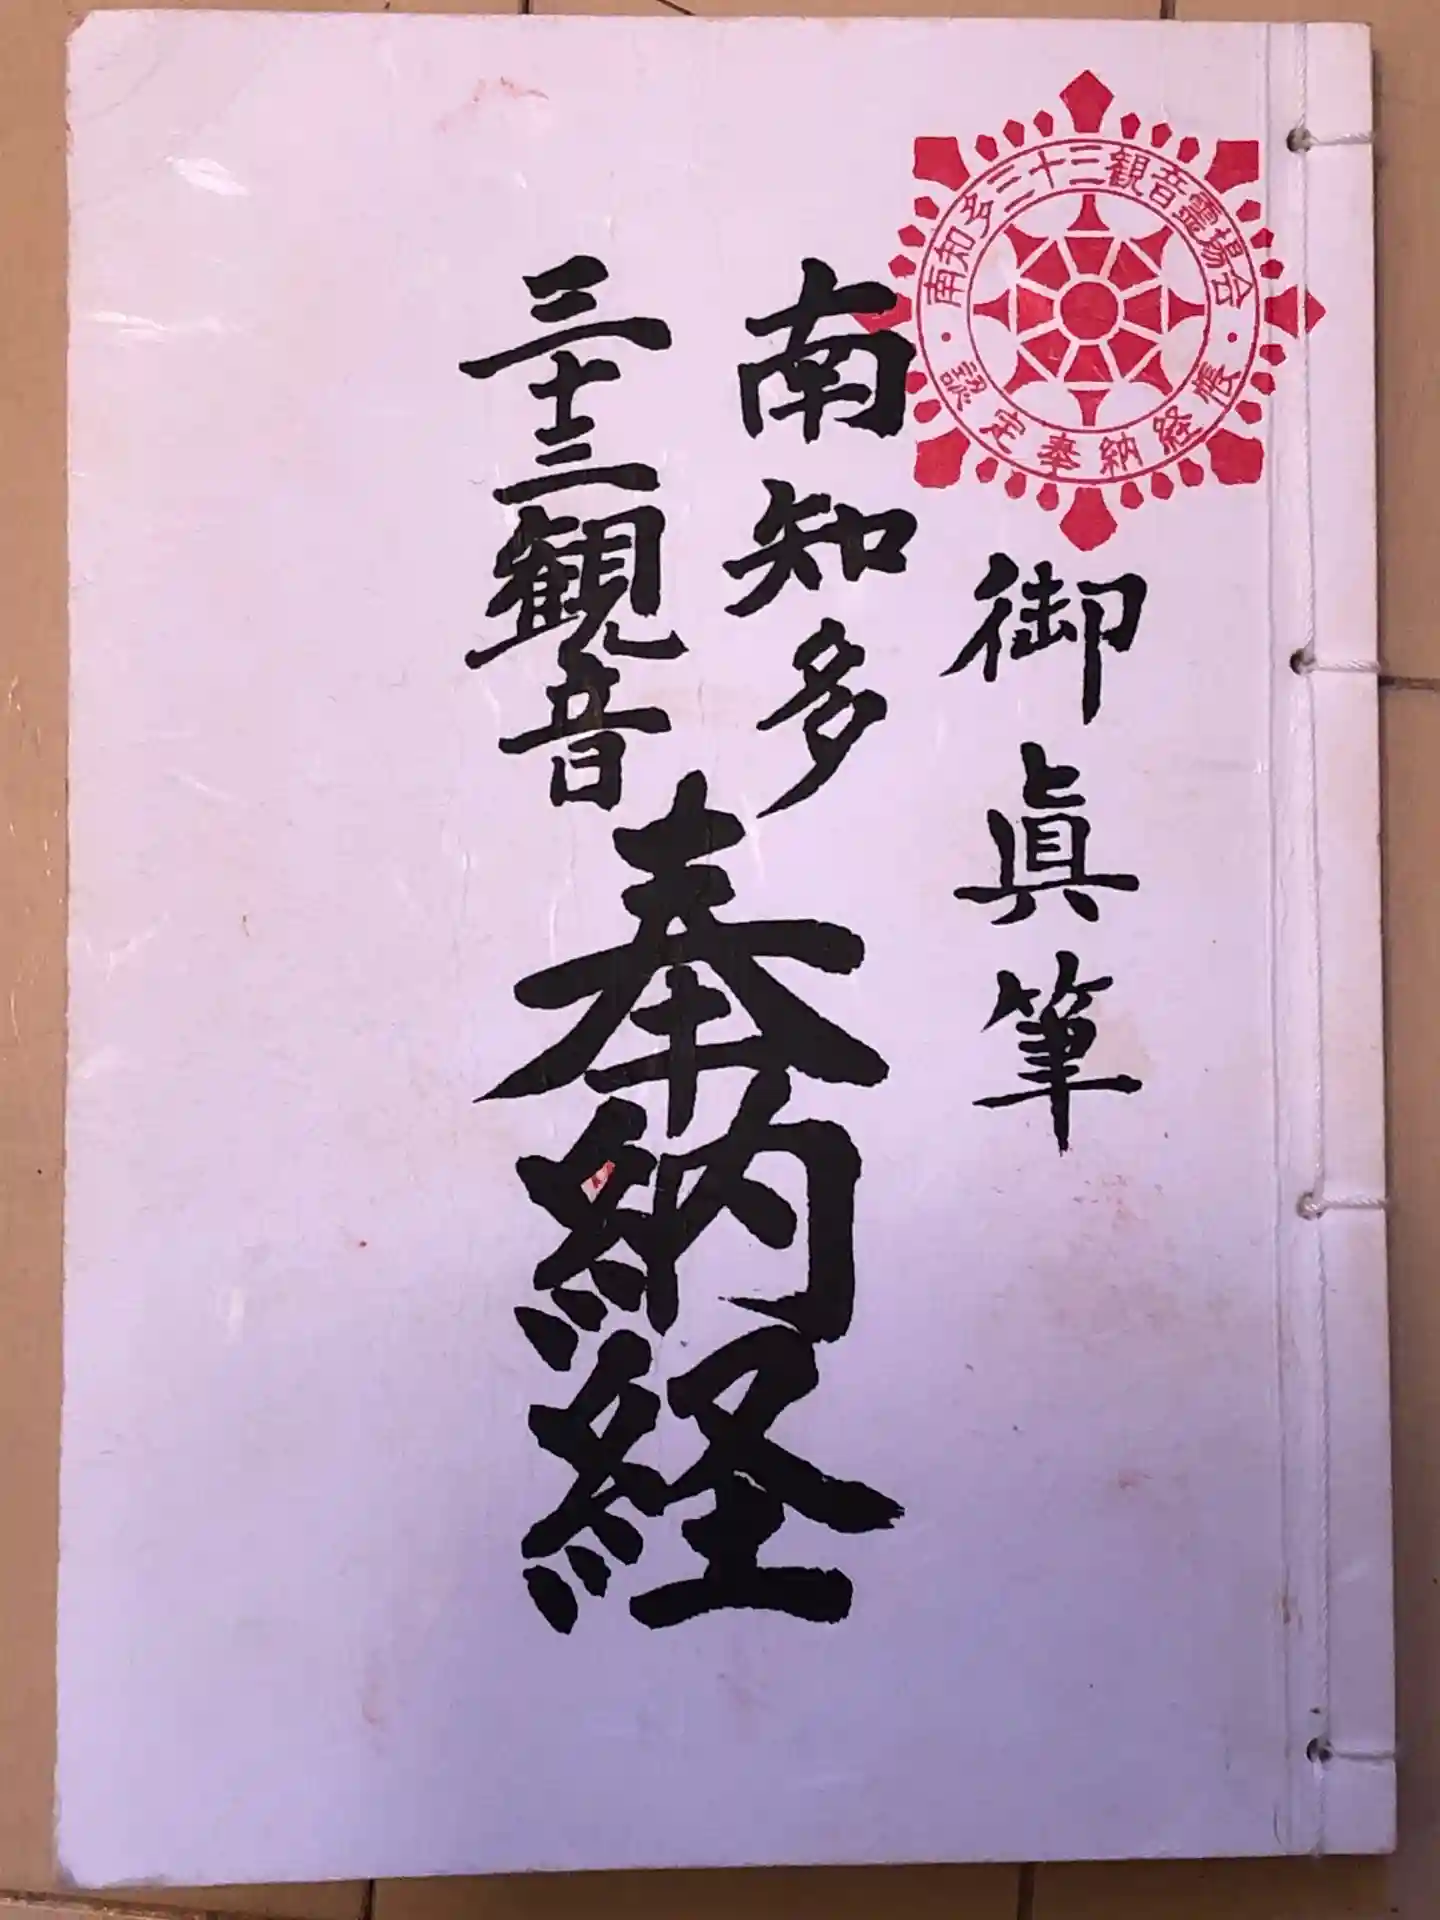 南知多三十三観音霊場会
・認定奉納経帳・
御眞筆
南知多
三十三観音
奉納経